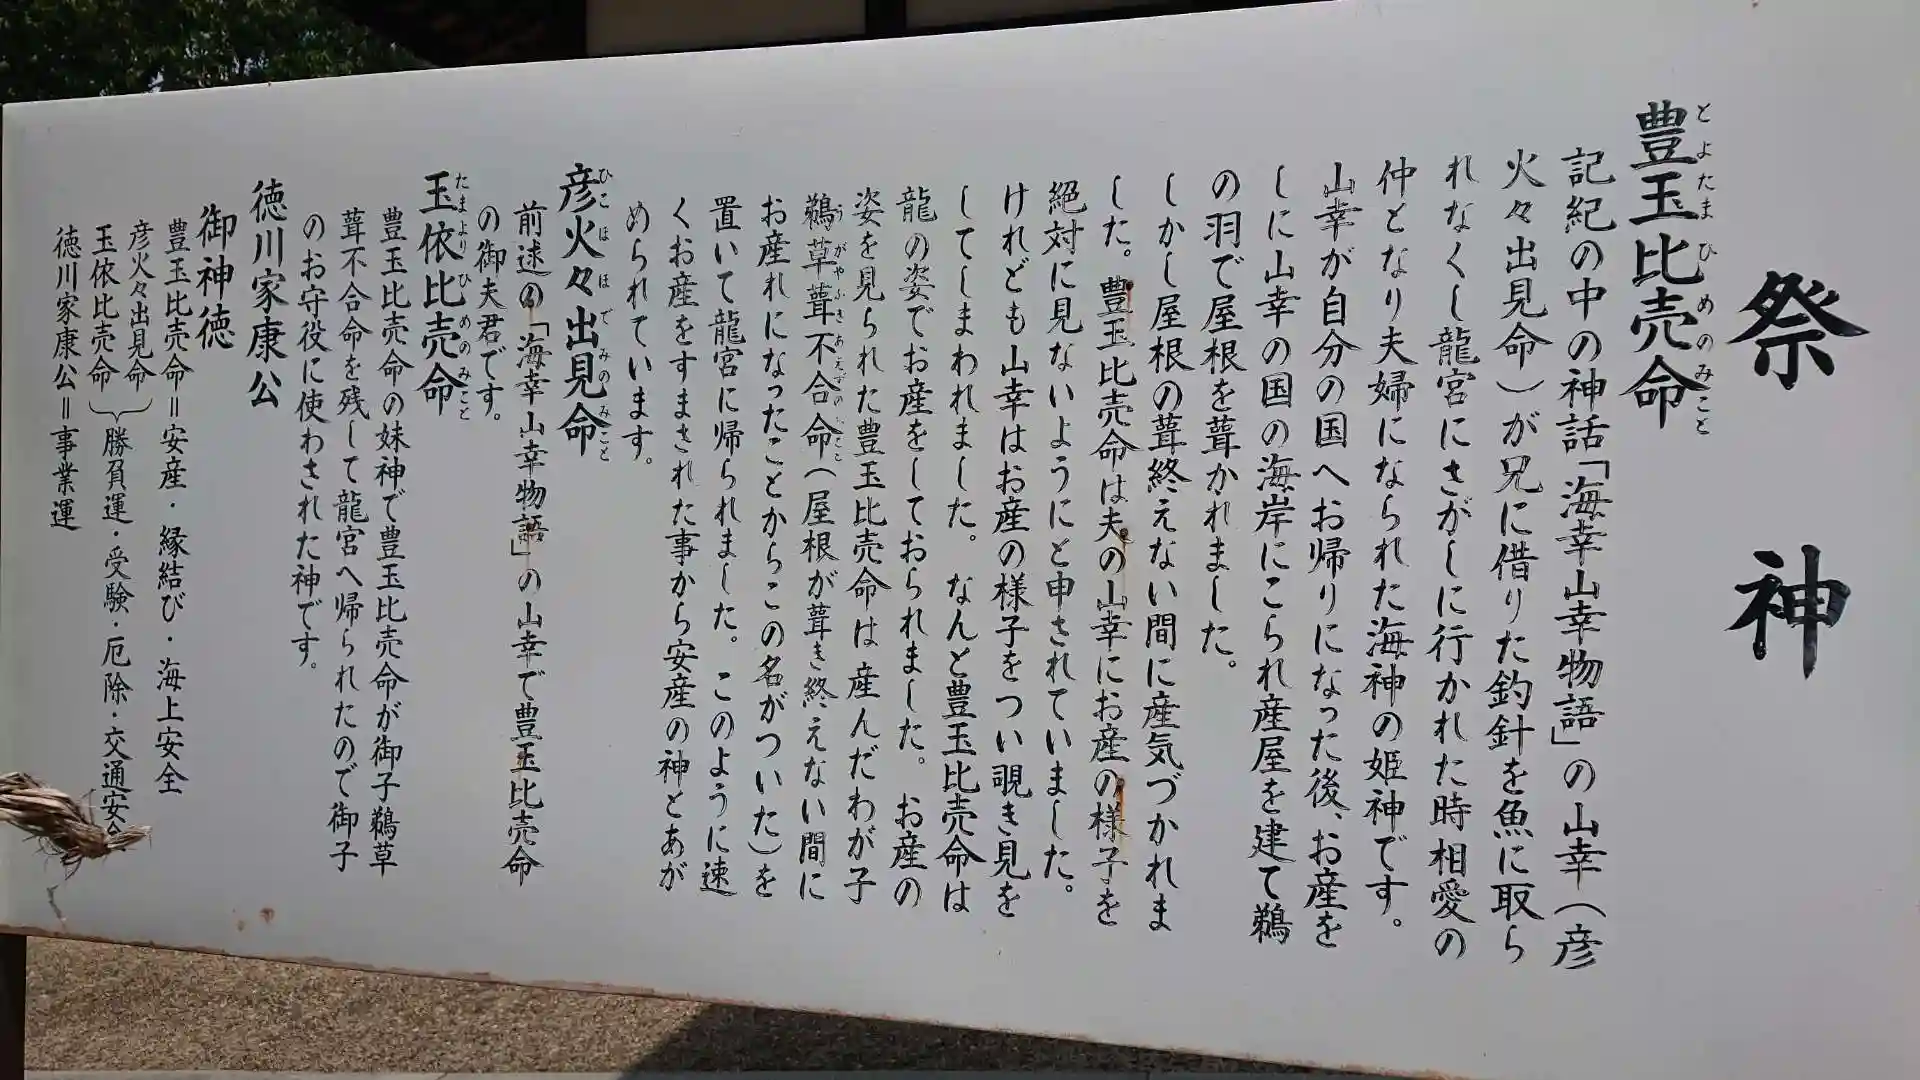 祭神
豊玉比売命
とよたまひめのみこと
記紀の中の神話「海幸山幸物語」の山幸（彦
火々出見命）が兄に借りた釣針を魚に取ら
れなくし龍宮にさがしに行かれた時相愛の
仲となり夫婦になられた海神の姫神です。
山幸が自分の国へお帰りになった後、お産を
しに山幸の国の海岸にこられ産屋を建て鵜
の羽で屋根を葺かれました。
しかし屋根の葺終えない間に産気づかれま
した。豊玉比売命は夫の山幸にお産の様子を
絶対に見ないようにと申されていました。
けれども山幸はお産の様子をつい覗き見を
してしまわれました。なんと豊玉比売命は
龍の姿でお産をしておられました。お産の
姿を見られた豊玉比売命は産んだわが子
鵜草葺不合命（屋根が葺き終えない間に
お産れになったことからこの名がついた）を
置いて龍宮に帰られました。このように速
くお産をすまされた事から安産の神とあが
められています。
彦火々出見命
ひこほほでみのみこと
前述の「海幸山幸物語」の山幸で豊玉比売命
の御夫君です。
玉依比売命
たまよりひめのみこと
豊玉比売命の妹神で豊玉比売命が御子鵜草
葺不合命を残して龍宮へ帰られたので御子
のお守役に使わされた神です。
徳川家康公
御神徳
豊玉比売命＝安産・縁結び・海上安全
彦火々出見命
玉依比売命
勝負運・受験・厄除・交通安全
徳川家康公＝事業運